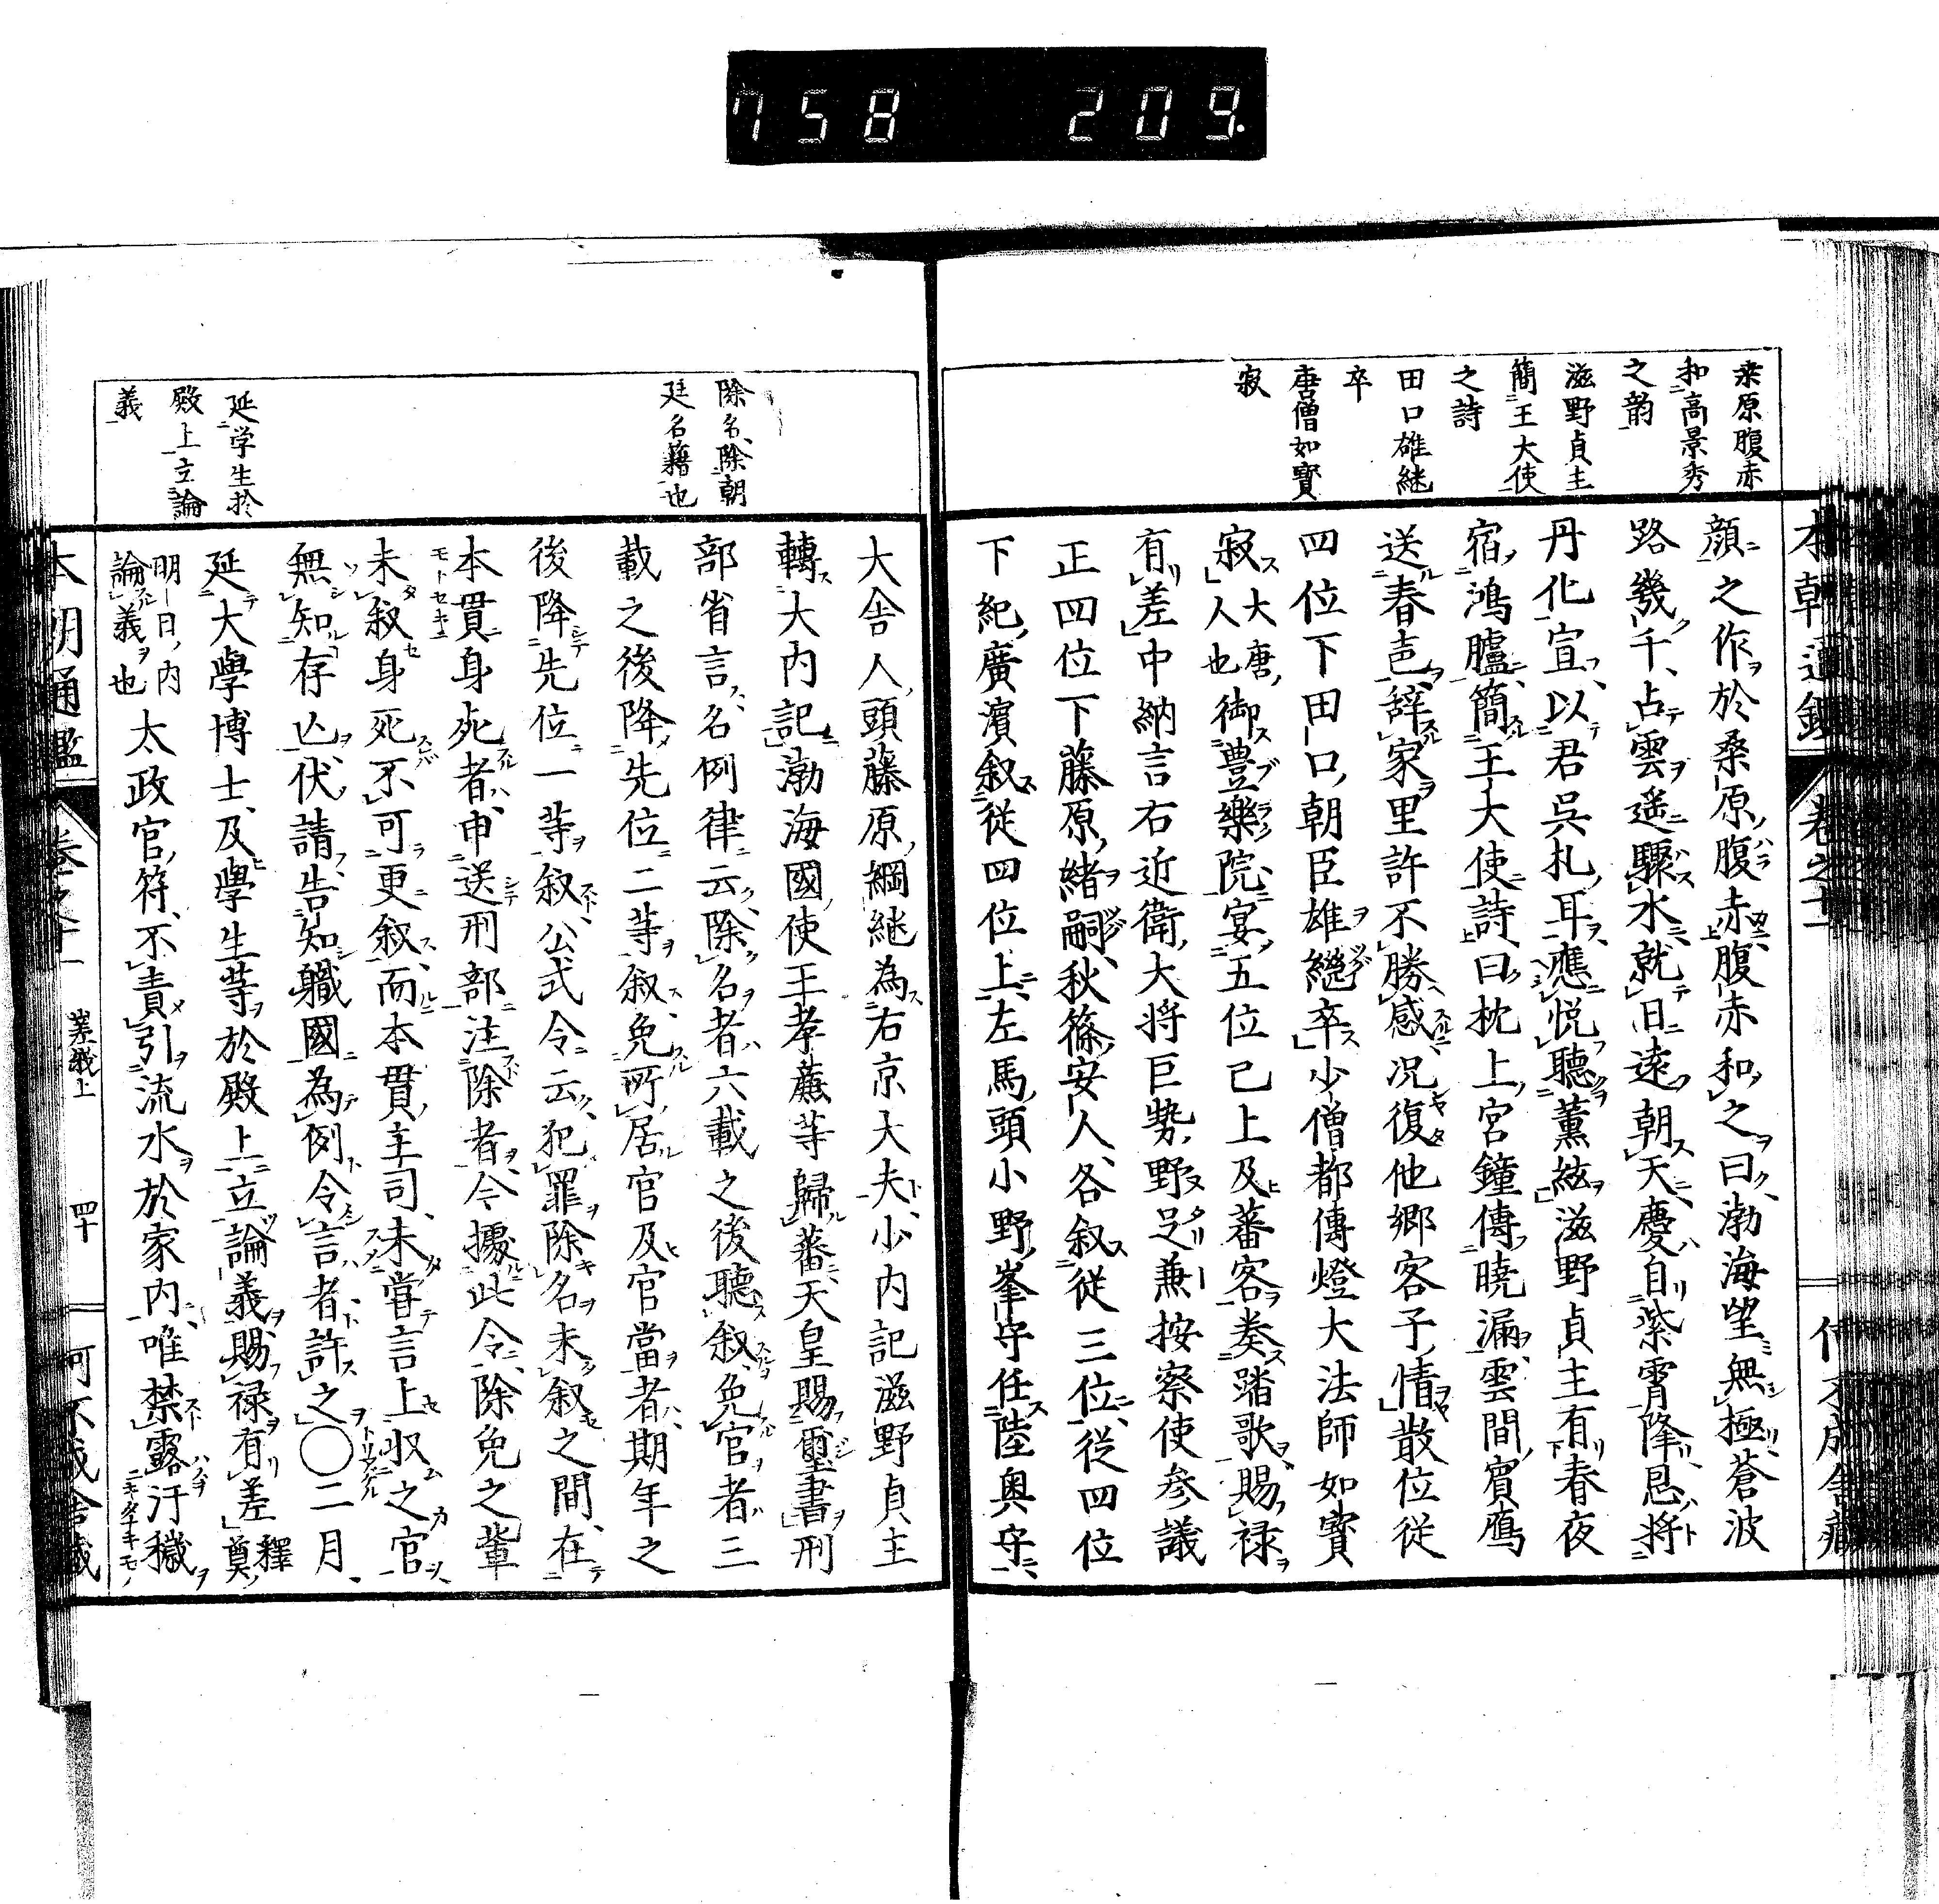 758 209.
桒原腹赤
和高景秀
之韵
滋野貞主
簡王大使
之詩
田口雄継
卒
唐僧如寳
寂
顔之作於桑原腹赤腹赤和之曰渤海望無極蒼波
路幾千占雲遥驟水就日遠朝天慶自紫霄降恩将
丹化宣以君呉札耳應悦聽薫絃滋野貞主有春夜
宿鴻臚簡王大使詩曰枕上宮鐘傳曉漏雲間賓鴈
送春声辞家里許不勝感况復他郷客子情散位従
四位下田口朝臣雄継卒少僧都傳燈大法師如寳
寂大唐人也御豊樂院宴五位已上及蕃客奏踏歌賜禄
有差中納言右近衛大将巨㔟野足兼按察使参議
正四位下藤原緒嗣秋篠安人各叙従三位従四位
下紀廣濱叙従四位上左馬頭小野峯守任陸奥守
除名除朝
廷名籍也
延学生於
殿上立論
義
大舎人頭藤原綱継為右京大夫少内記滋野貞主
轉大内記渤海國使王孝薫等歸蕃天皇賜璽書刑
部省言名例律云除名者六載之後聽叙免官者三
載之後降先位二等叙免所居官及官當者期年之
後降先位一等叙公式令云犯罪除名未叙之間在
本貫身死者申送刑部注除者今據此令除免之輩
未叙身死不可更叙而本貫主司未嘗言上収之官
無知存亾伏請告知職國為例令言者許之〇二月
延大學博士及學生等於殿上立論義賜禄有差釋奠
明日内論義也太政官符不責引流水於家内唯禁露汙穢
本朝通鑑 巻之十一 嵯峨上 四十